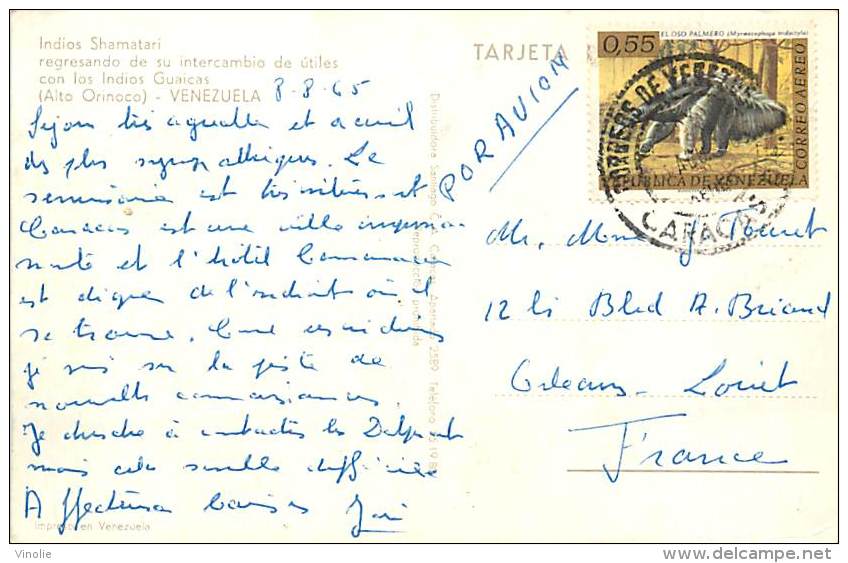 Indios Shamatari
regresando de su intercambio de útiles
con los Indios Guaicas
(Alto Orinoco) - VENEZUELA
8-8-65
TARJETA
0,55
EL OSO PALMERO (Myrmecophaga tridactyla)
CORREO AEREO
REPUBLICA DE VENEZUELA
CORREOS DE VENEZUELA
CARACAS
POR AVION
Séjour très agréable et accueil
des plus sympathiques. Le
séminaire est très intéressant
Caracas est une ville
et l'hôtel
est digne de l'endroit où il
se trouve.
je suis sur la piste de
nouvelles connaissances.
Je cherche à contacter les
mais cela semble difficile
Affectueux baisers
Mr, Mme J.
12 Bled A. Briand
Orléans - Loiret
France
Impreso en Venezuela
Vinolie
delcampe.net